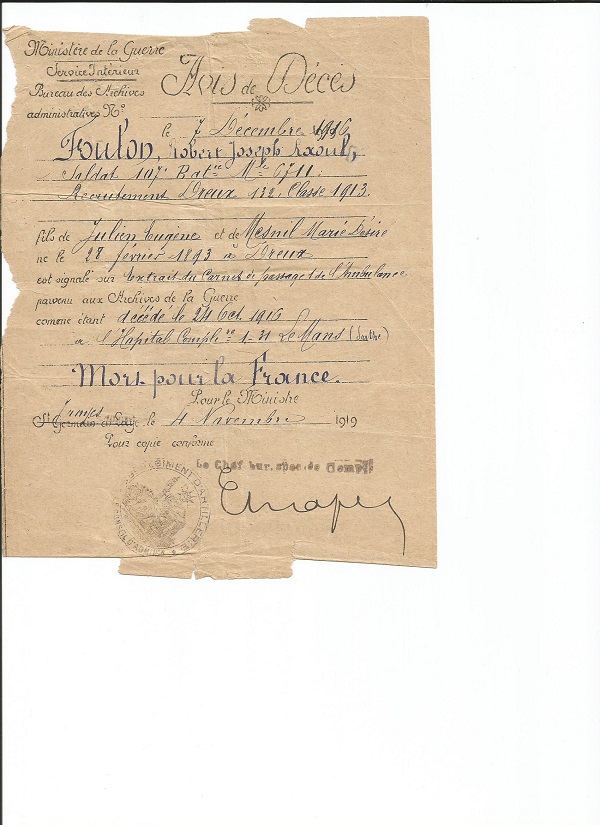 Ministère de la Guerre
Service Intérieur
Bureau des Archives
administratives No
Avis de Décès
le 7 Décembre 1916
Foulon, Robert Joseph Raoul,
Soldat 107e Baton Mle 6711
Recrutement Dreux 132. Classe 1913.
fils de Julien Eugène et de Mesnil Marie Désire
né le 28 février 1893 à Dreux
est signalé sur Extrait du Carnet de passage de l'Ambulance
parvenu aux Archives de la Guerre
comme étant décédé le 24 Oct. 1916
à l'Hôpital Complre 1-31 Le Mans (Sarthe)
Mort pour la France.
Pour le Ministre
St Germain en Laye le 4 Novembre 1919
Pour copie conforme
Le Chef bur. spéc. de Compté
REGIMENT D'ARTILLERIE